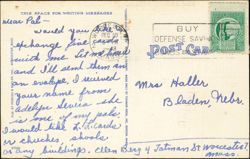 THIS SPACE FOR WRITING MESSAGES
Dear Pal-
Would you like
exchange fine cards
with me. Let me know
and I'll send them in
an envelope, I received
your name from
Adelyn
she
is one of my pals.
I would like L. P. cards
or churches, schools
or any buildings. Ellen Berg 4 Tatman St Worcester
Mass.
BUY
DEFENSE SAVINGS
POST CARD
Mrs Haller
Bladen, Nebr.